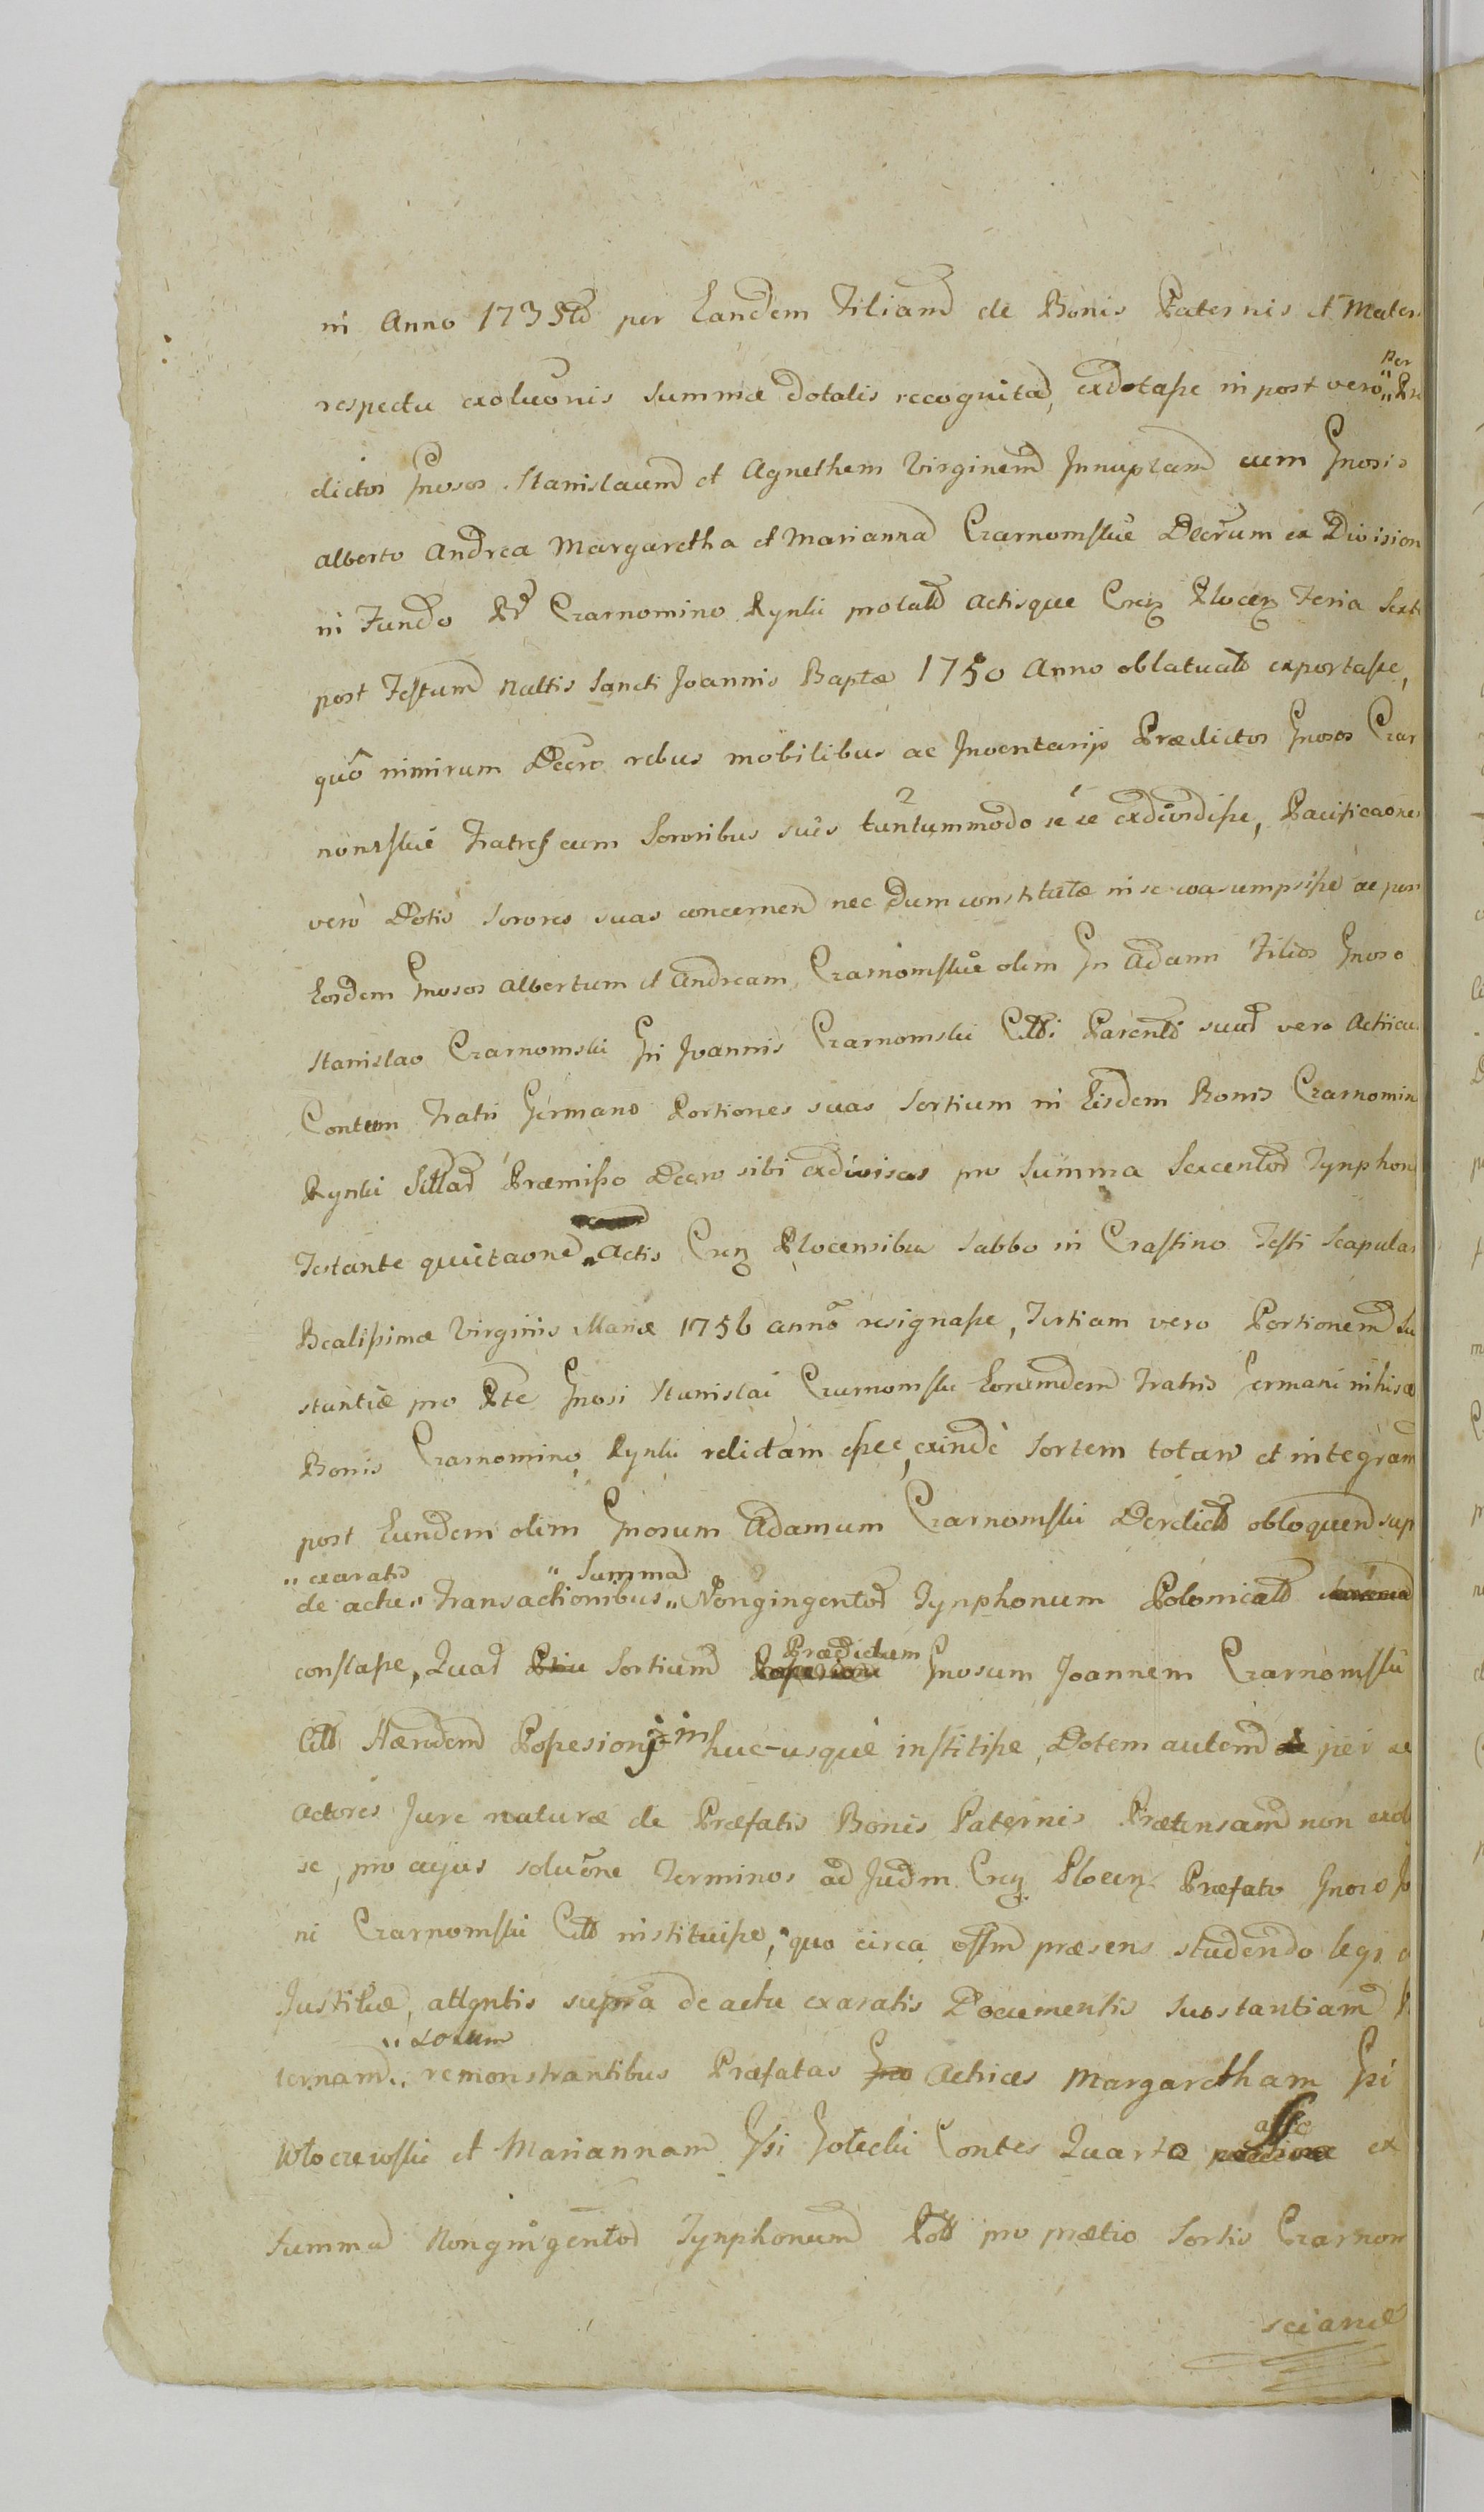 in Anno 1735td per Eandem Filiam de Bonis Paternis et Mater
respectu exoluonis summæ dotalis recognitam, exdotasse in post vero „Per„ Præ
dictos Gnosos Stanislaum et Agnethem Virginem Innuptam cum Gnosis
Alberto Andrea Margaretha et Marianna Czarnomskie Decrum ex Division
in Fundo Czarnomino Rynki prolatt Actisque Cren Plocen Feria Sexta
post Festum Naltis Sancti Joannis Baptæ 1750 Anno oblatuatt exportasse,
quô nimirum Decro rebus mobilibus ac Inventarijs Prædictos Gnosos Czar
nomskie Fratres cum Sororibus suis tuntummodo se se exdivisisse, Pacificaones
verò Dotis Sorores suas concernen nec dum constitutæ in se coasumpsisse ac per
Eosdem Gnosos Albertum et Andream Czarnomskie olim Gn Adami Filios Gnoso
Stanislao Czarnomski Gn Joannis Czarnomski Citti Parenti suum vero Actricu
Contem Fratri Germano Portiones suas Sortium in Eisdem Bonis Czarnomin
Rynki Sittas Præmisso Decro sibi exdivisas pro Summa Sexcentos Tynphon
Testante quietaone „Actis Cren Plocensibus Sabbo in Crastino Festi Scapular
Beatissimæ Virginis Mariæ 1756 annô resignasse, Tertiam vero Portionem Su
stantiæ pro Pte Gnosi Stanislai Czarnomski Eorumdem Fratris Germani in hisce
Bonis Czarnomino Rynki relictam esse, exindè Sortem totam et integram
post Eundem olim Gnosum Adamum Czarnomski Derelictt obloquend sup
„exaratis „Summa
de actu„ Transactionibus„ Nongingentos Tynphonum Polonicatt
constasse, Quas Sortium Prædictum Gnosum Joannem Czarnomski
Citt Hæredem Possesionj in huc-usquè institisse, Dotem autem per se
Actores Jure naturæ de Præfatis Bonis Paternis Prætensam non exol
se, pro cujus soluône Terminos ad Judm Cren Plocen Præfato Gnoso Jo
ni Czarnomski Citt instituisse, quo circa offm præsens studendo legi
Justitiæ, attgntis supra de actu exaratis Documentis Substantiam
„Eorum
ternam„ remonstrantibus Præfatas Actrices Margaretham Gsi
Włoczewskie et Mariannam Gsi Gotecki Contes Quarta asse ex
Summa Nongingentos Tynphonum Pott pro prætio Sortis Czarnom
scianæ